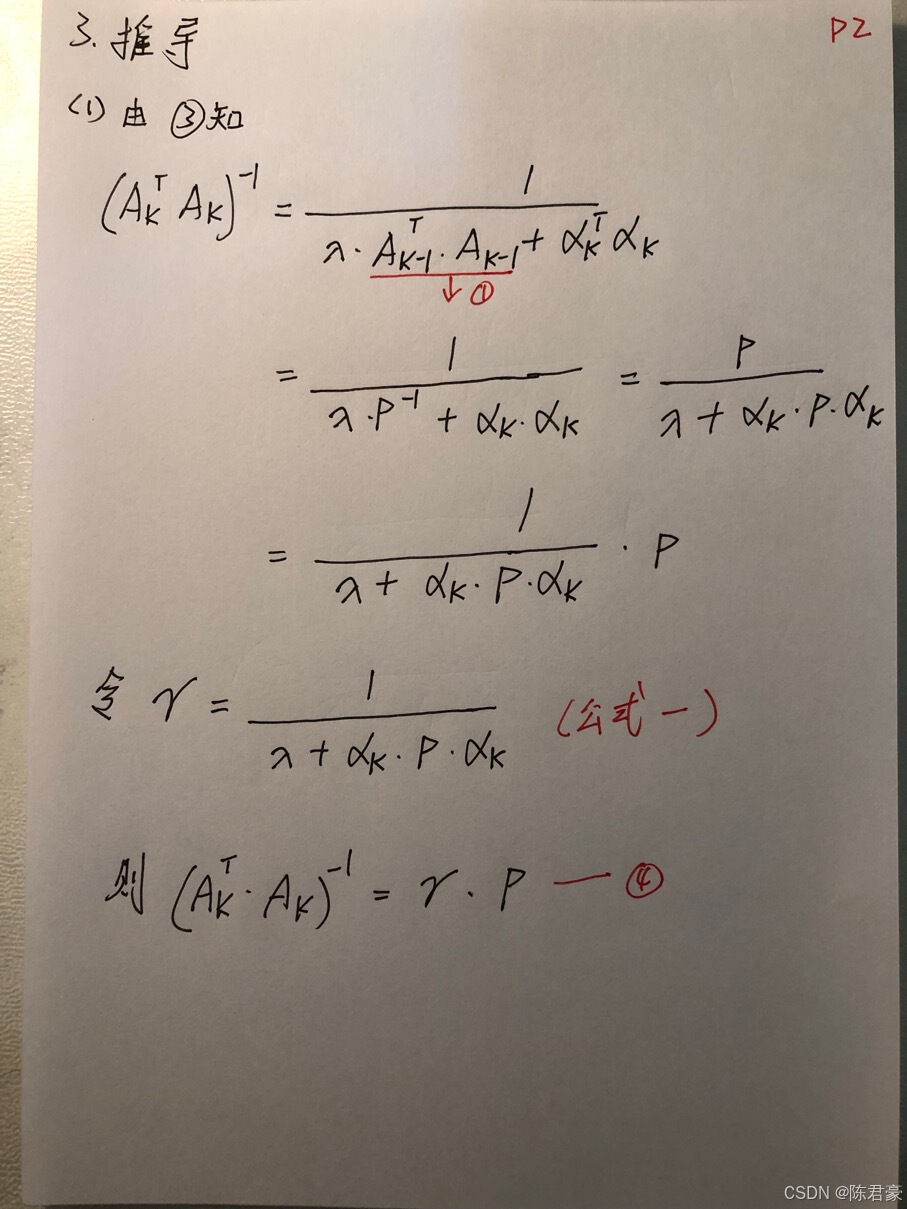 3. 推导 P2
(1) 由 ③知
(A_K^T A_K)^{-1} = 1 / (λ · A_{K-1}^T · A_{K-1} + α_K^T α_K)
↓ ①
= 1 / (λ · P^{-1} + α_K · α_K) = P / (λ + α_K · P · α_K)
= 1 / (λ + α_K · P · α_K) · P
令 γ = 1 / (λ + α_K · P · α_K) (公式一)
则 (A_K^T · A_K)^{-1} = γ · P —— ④
CSDN @陈君豪